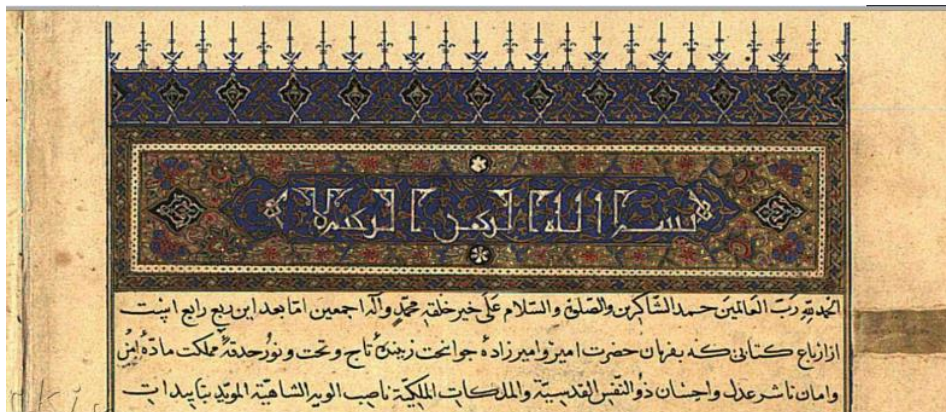 بسم الله الرحمن الرحیم
الحمد لله رب العالمین حمد الشاکرین والصلوة والسلام علی خیر خلقه محمد وآله اجمعین اما بعد این ربع رابع است
از ارباع کتابی که بفرمان حضرت امیر وامیرزادهٔ جوانبخت زیبندهٔ تاج و تخت و نور حدقهٔ مملکت مادهٔ امن
وامان ناشر عدل واحسان ذو النفس القدسیة والملکات الملکیة ناصب الویة الشاهیة الموید بتاییدات